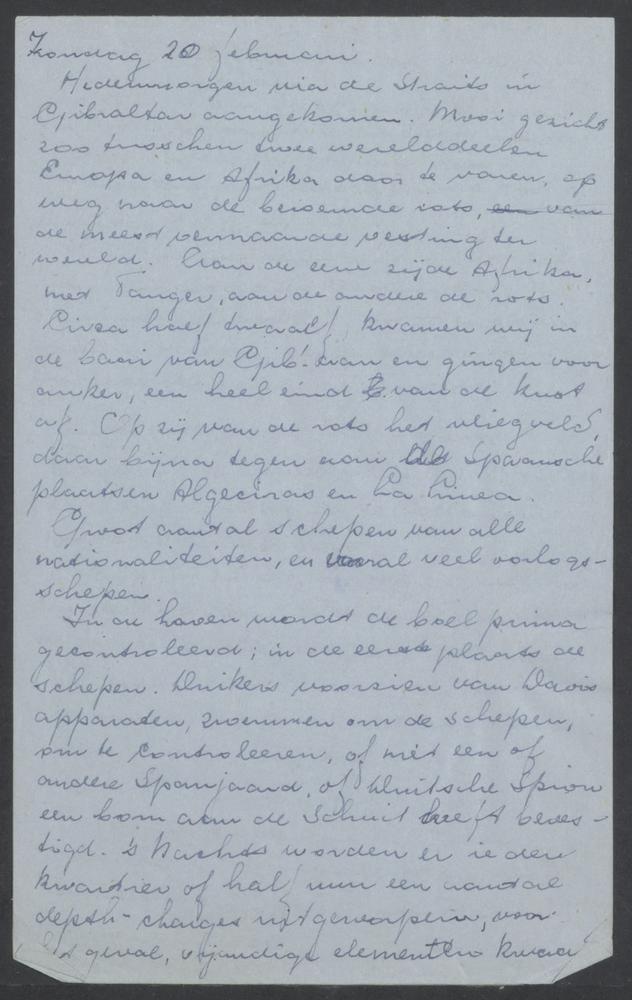 Zondag 20 februari.
Hedenmorgen via de Straits in
Gibraltar aangekomen. Mooi gezicht
zoo tusschen twee werelddeelen
Europa en Afrika door te varen, op
weg naar de beroemde rots, een van
de meest vermaarde vesting ter
wereld. Aan de eene zijde Afrika,
met Tanger, aan de andere de rots.
Circa half twaalf kwamen wij in
de baai van Gib. aan en gingen voor
anker, een heel eind van de kust
af. Op zij van de rots het vliegveld,
daar bijna tegen aan de Spaansche
plaatsen Algeciras en La Linea.
Groot aantal schepen van alle
nationaliteiten, en vooral veel oorlogs-
schepen.
In de haven wordt de boel prima
gecontroleerd; in de eerste plaats de
schepen. Duikers voorzien van Davis
apparaten, zwemmen om de schepen,
om te controleeren, of niet een of
andere Spanjaard, of Duitsche Spion
een bom aan de Schuit heeft beves-
tigd. 's Nachts worden er iedere
kwartier of half uur een aantal
depth-charges uitgeworpen, voor
't geval, vijandige elementen kwaad